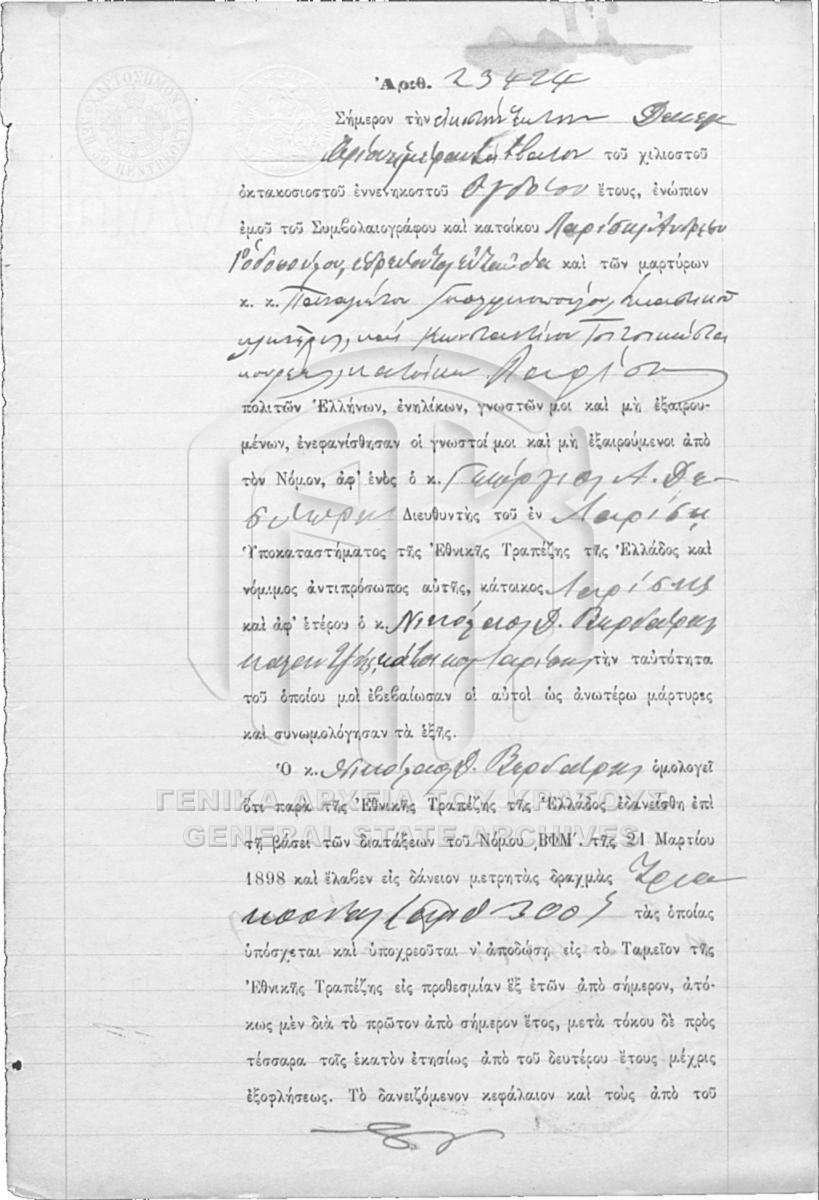 Ἀριθ. 23424
Σήμερον τὴν εἰκοστὴν ἕκτην Δεκεμ
βρίου ἡμέραν Σάββατον τοῦ χιλιοστοῦ
ὀκτακοσιοστοῦ ἐννενηκοστοῦ ὀγδόου ἔτους, ἐνώπιον
ἐμοῦ τοῦ Συμβολαιογράφου καὶ κατοίκου Λαρίσης Ἀνδρέου
Ῥοδοπούλου, ἑδρεύοντος ἐνταῦθα καὶ τῶν μαρτύρων
κ. κ. Παναγιώτου δικαστικοῦ
κλητῆρος, καὶ Κωνσταντίνου
κουρέως, κατοίκων Λαρίσης
πολιτῶν Ἑλλήνων, ἐνηλίκων, γνωστῶν μοι καὶ μὴ ἐξαιρου-
μένων, ἐνεφανίσθησαν οἱ γνωστοί μοι καὶ μὴ ἐξαιρούμενοι ἀπὸ
τὸν Νόμον, ἀφ' ἑνὸς ὁ κ. Γεώργιος Λ. Δε-
Διευθυντὴς τοῦ ἐν Λαρίσῃ
Ὑποκαταστήματος τῆς Ἐθνικῆς Τραπέζης τῆς Ἑλλάδος καὶ
νόμιμος ἀντιπρόσωπος αὐτῆς, κάτοικος Λαρίσης
καὶ ἀφ' ἑτέρου ὁ κ. Νικόλαος Δ. Βερδάρης
κάτοικος Λαρίσης τὴν ταὐτότητα
τοῦ ὁποίου μοὶ ἐβεβαίωσαν οἱ αὐτοὶ ὡς ἀνωτέρω μάρτυρες
καὶ συνωμολόγησαν τὰ ἑξῆς.
Ὁ κ. Νικόλαος Δ. Βερδάρης ὁμολογεῖ
ὅτι παρὰ τῆς Ἐθνικῆς Τραπέζης τῆς Ἑλλάδος ἐδανείσθη ἐπὶ
τῇ βάσει τῶν διατάξεων τοῦ Νόμου ͵ΒΦΜ΄. τῆς 21 Μαρτίου
1898 καὶ ἔλαβεν εἰς δάνειον μετρητὰς δραχμὰς Τρια
κοσίας (ἀριθ 300) τὰς ὁποίας
ὑπόσχεται καὶ ὑποχρεοῦται ν' ἀποδώσῃ εἰς τὸ Ταμεῖον τῆς
Ἐθνικῆς Τραπέζης εἰς προθεσμίαν ἓξ ἐτῶν ἀπὸ σήμερον, ἀτό-
κως μὲν διὰ τὸ πρῶτον ἀπὸ σήμερον ἔτος, μετὰ τόκου δὲ πρὸς
τέσσαρα τοῖς ἑκατὸν ἐτησίως ἀπὸ τοῦ δευτέρου ἔτους μέχρις
ἐξοφλήσεως. Τὸ δανειζόμενον κεφάλαιον καὶ τοὺς ἀπὸ τοῦ
ΓΕΝΙΚΑ ΑΡΧΕΙΑ ΤΟΥ ΚΡΑΤΟΥΣ
GENERAL STATE ARCHIVES